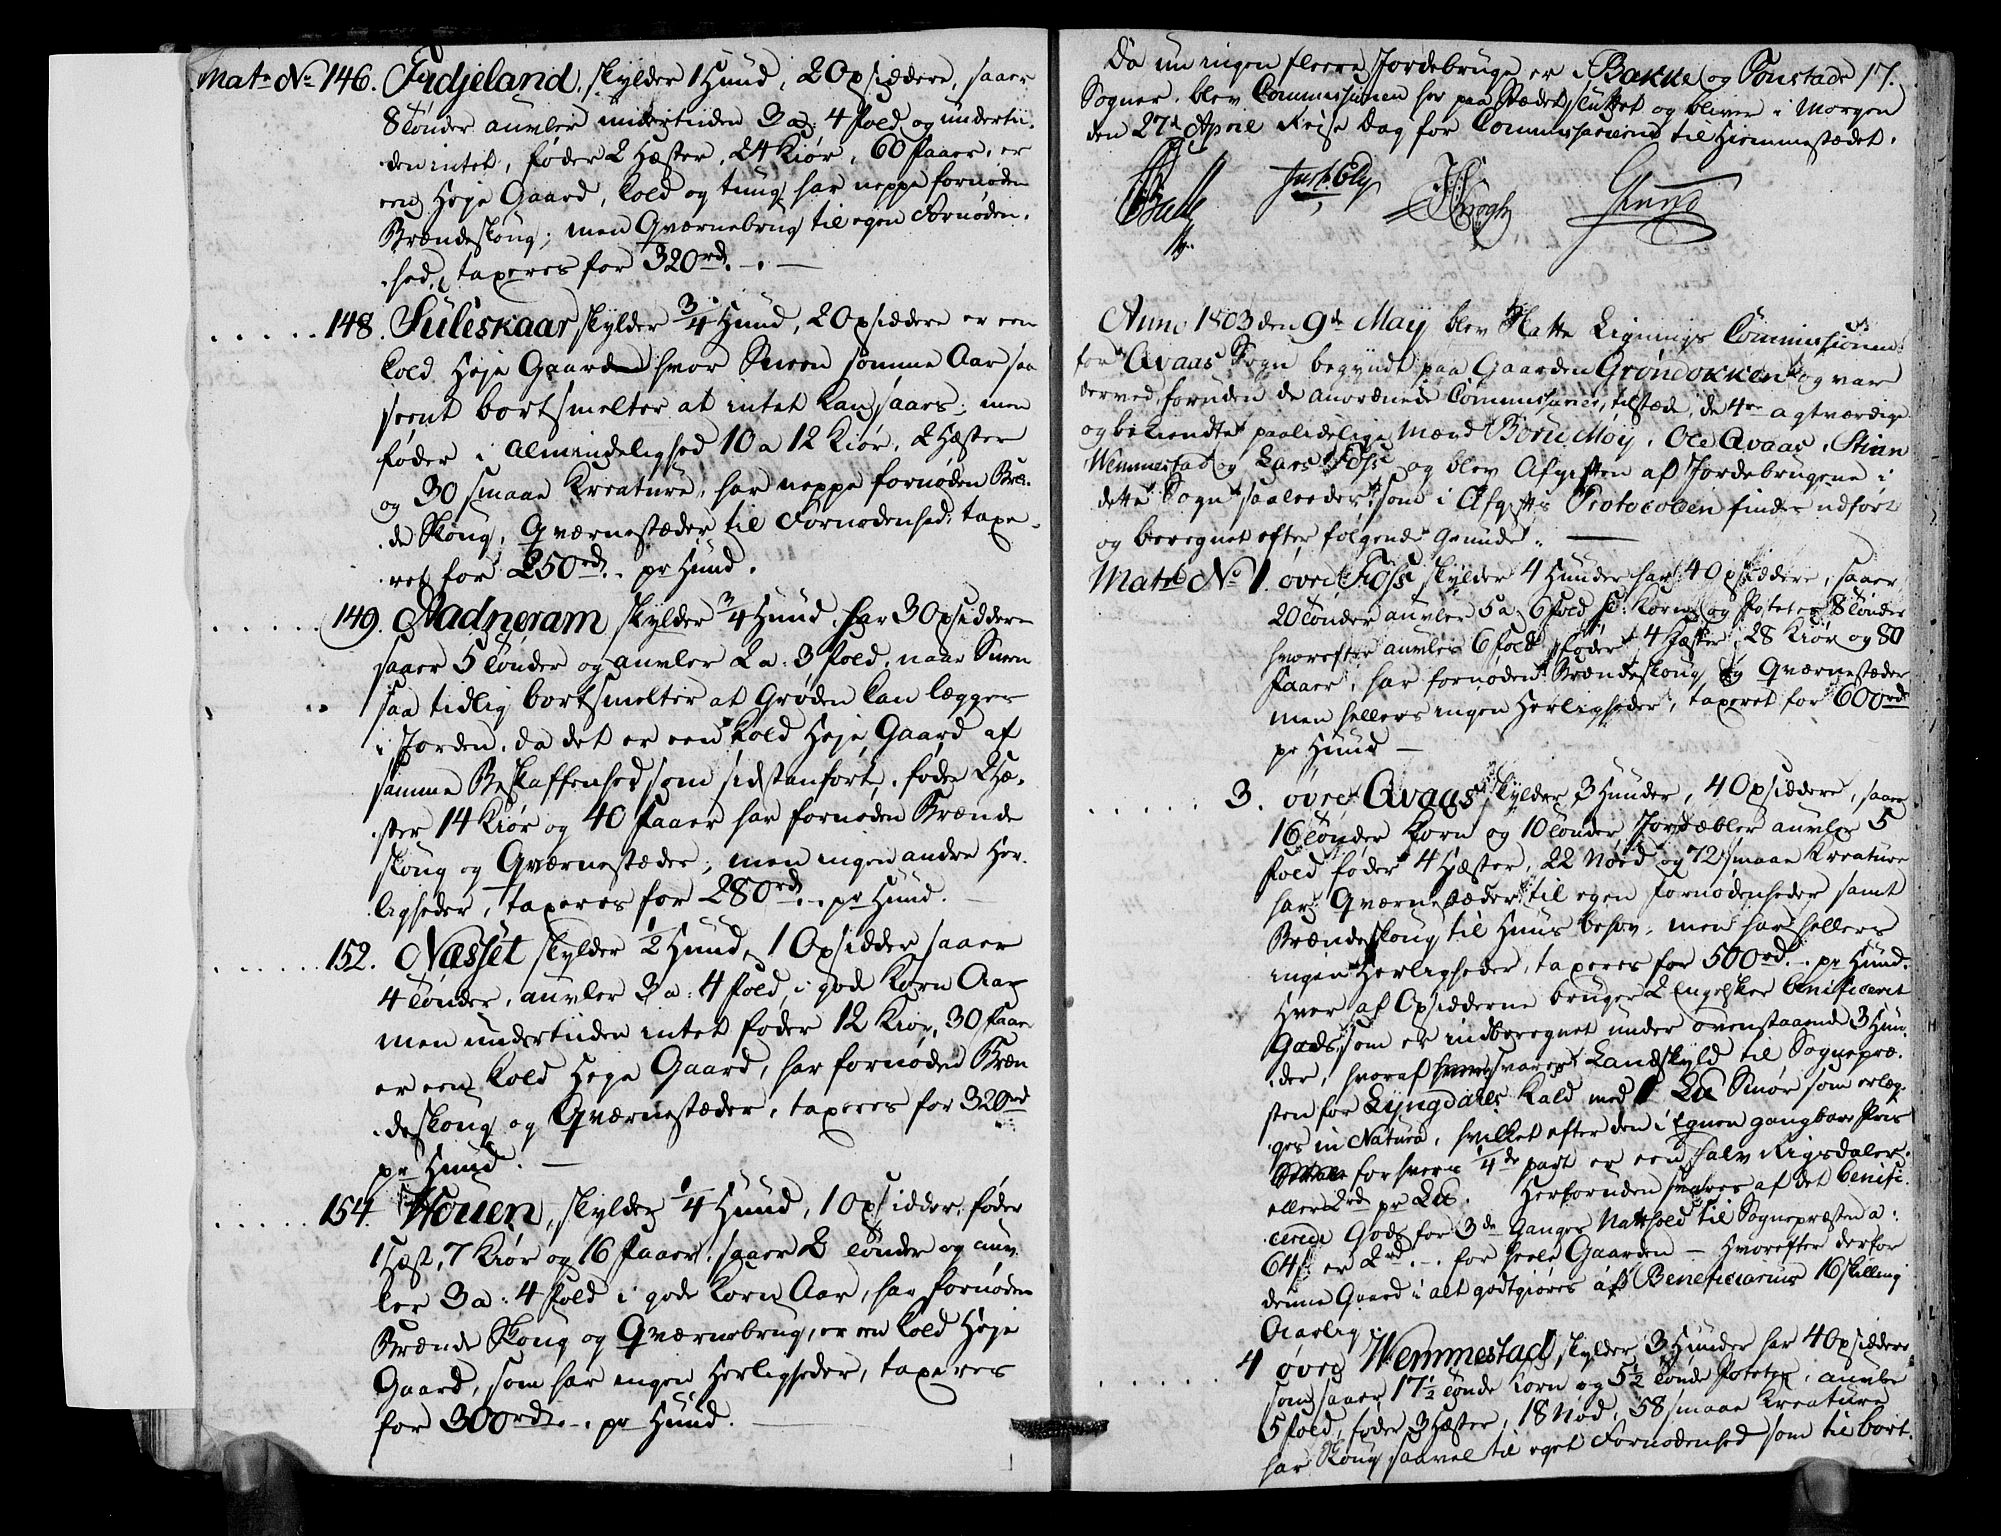 Matr No 146. Fidjeland, skylder 1 Huud, 2 Opsiddere, saaer
8 tönder auvler undertiiden 3 a: 4 fold og underti-
den intet, føder 2 Hæster, 24 Kiør, 60 faaer, er
en Heje Gaard, kold og tung, har neppe fornøden
Brændeskoug; men Qværnebrug til egen Fornøden-
hed, taxeres for 320rd. - . -
148. Suleskaar, skylder 3/4 Huud, 2 Opsiddere er een
kold Heje Gaard hvor Sneen somme Aar saa
seent bortsmelter at intet kan saaes; men
føder i Almindelighed 10 a 12 Kiør, 2 Hæster
og 30 smaae Kreature, har neppe fornøden Bræn-
de Skoug, Qværnestæder til Fornødenhed; taxe-
ret for 250rd. - . pr Huud.
149. Aadneram skylder 3/4 Huud, har 3 Opsiddere
saaer 5 tönder og auvler 2 a: 3 fold, naar Sneen
saa tidlig bortsmelter at Grøden kan lægges
i Jorden, da det er een kold Heje Gaard af
samme Beskaffenhed som sidstanført, føder 2 Hæ-
ster 14 Kiør og 40 faaer har fornøden Brænde
skoug og Qværnestæder; men ingen andre Her-
ligheder, taxeres for 280rd. - . pr Huud.
152. Næsset skylder 1/2 Huud, 1 Opsidder saaer
4 tönder, auvler 3 a: 4 fold, i gode Korn Aar
men undertiiden intet føder 12 Kiør, 30 faaer
er een kold Heje Gaard, har fornøden Bræn
deskoug og Qværnestæder, taxeres for 320rd
pr Huud. -
154. Houen, skylder 1/4 Huud, 1 Opsidder, føder
1 Hæst, 7 Kiør og 16 faaer, saaer 2 tönder og auv
ler 3 a: 4 fold i gode Korn Aar, har fornøden
Brænde Skoug og Qværnebrug, er een kold Heje
Gaard, som har ingen Herligheder, taxeres
for 300rd. - . pr Huud.
Da nu ingen fleere Jordebruge er i Bakke og Tonstads 17.
Sogner, blev Commissionen her paa Stædet sluttet og bliver i Morgen
den 27de April Reise Dag for Commissarierne til Hiemmestædet.
Anno 1803 den 9de May blev Matr Lignings Commissionen
for Qvaas Sogn begyndt paa Gaarden Grøndokken og var
derved foruden de anordnede Commissarier, tilstæde, de 4re agtværdige
og bekiendte paalidelige Mænd Børu Møy, Ole Qvaas, Stian
Wemmestad og Lars Foss og blev Afgiften af Jordebrugene i
dette Sogn saaleedes som i Afgifts Protocollen findes udført
og beregnet efter følgende Grunde:
Matr No 1. øvre Foss skylder 4 Huuder har 4 Opsiddere, saaer
20 tönder auvler 5 a: 6 fold Korn og Poteter 8 tönder
hvorefter auvles 6 fold, føder 4 Hæster, 28 Kiør og 80
faaer, har fornøden Brændeskoug og Qværnestæder
men hellers ingen Herligheder, taxeret for 600rd
pr Huud -
3. øvre Qvaas skylder 3 Huuder, 4 Opsiddere, saaer
16 tönder Korn og 10 tönder Jordæbler auvler 5
fold føder 4 Hæster, 22 Nöd og 72 smaae Kreature
har Qværnestæder til egen fornødenheder samt
Brændeskoug til Huus behov, men har hellers
ingen Herligheder, taxeres for 500rd. - . pr Huud.
Hver af Opsidderne bruger 2 Engelsker benificeret
Gods, som er indberegnet under ovenstaaende 3 Huu-
der, hvoraf svares Landskyld til Sognepræ-
sten for Lyngdals Kald med 1 L℔ Smør som erlæg-
ges in Natura, hvilket efter den i Egnen gangbare Priis
for hvers 1/4de part er een halv Rigsdaler
eller 2rd pr L℔. Herforuden svares af det benifi-
cerede Gods for 3de Ganger Natthold til Sognepræsten a:
64s er 2rd. - . for heele Gaarden - Hvorefter derfor
denne Gaard i alt godtgiøres af Beneficiarius 16 skilling
Aarlig.
4 øvre Wemmestad, skylder 3 Huuder har 4 Opsiddere
som saaer 17 1/2 tönde Korn og 5 1/2 tönde Poteter, auvler
5 fold, føder 3 Hæster, 18 Nöd, 58 smaae Kreature
har Skoug saavel til eget Fornødenhed som til bort-